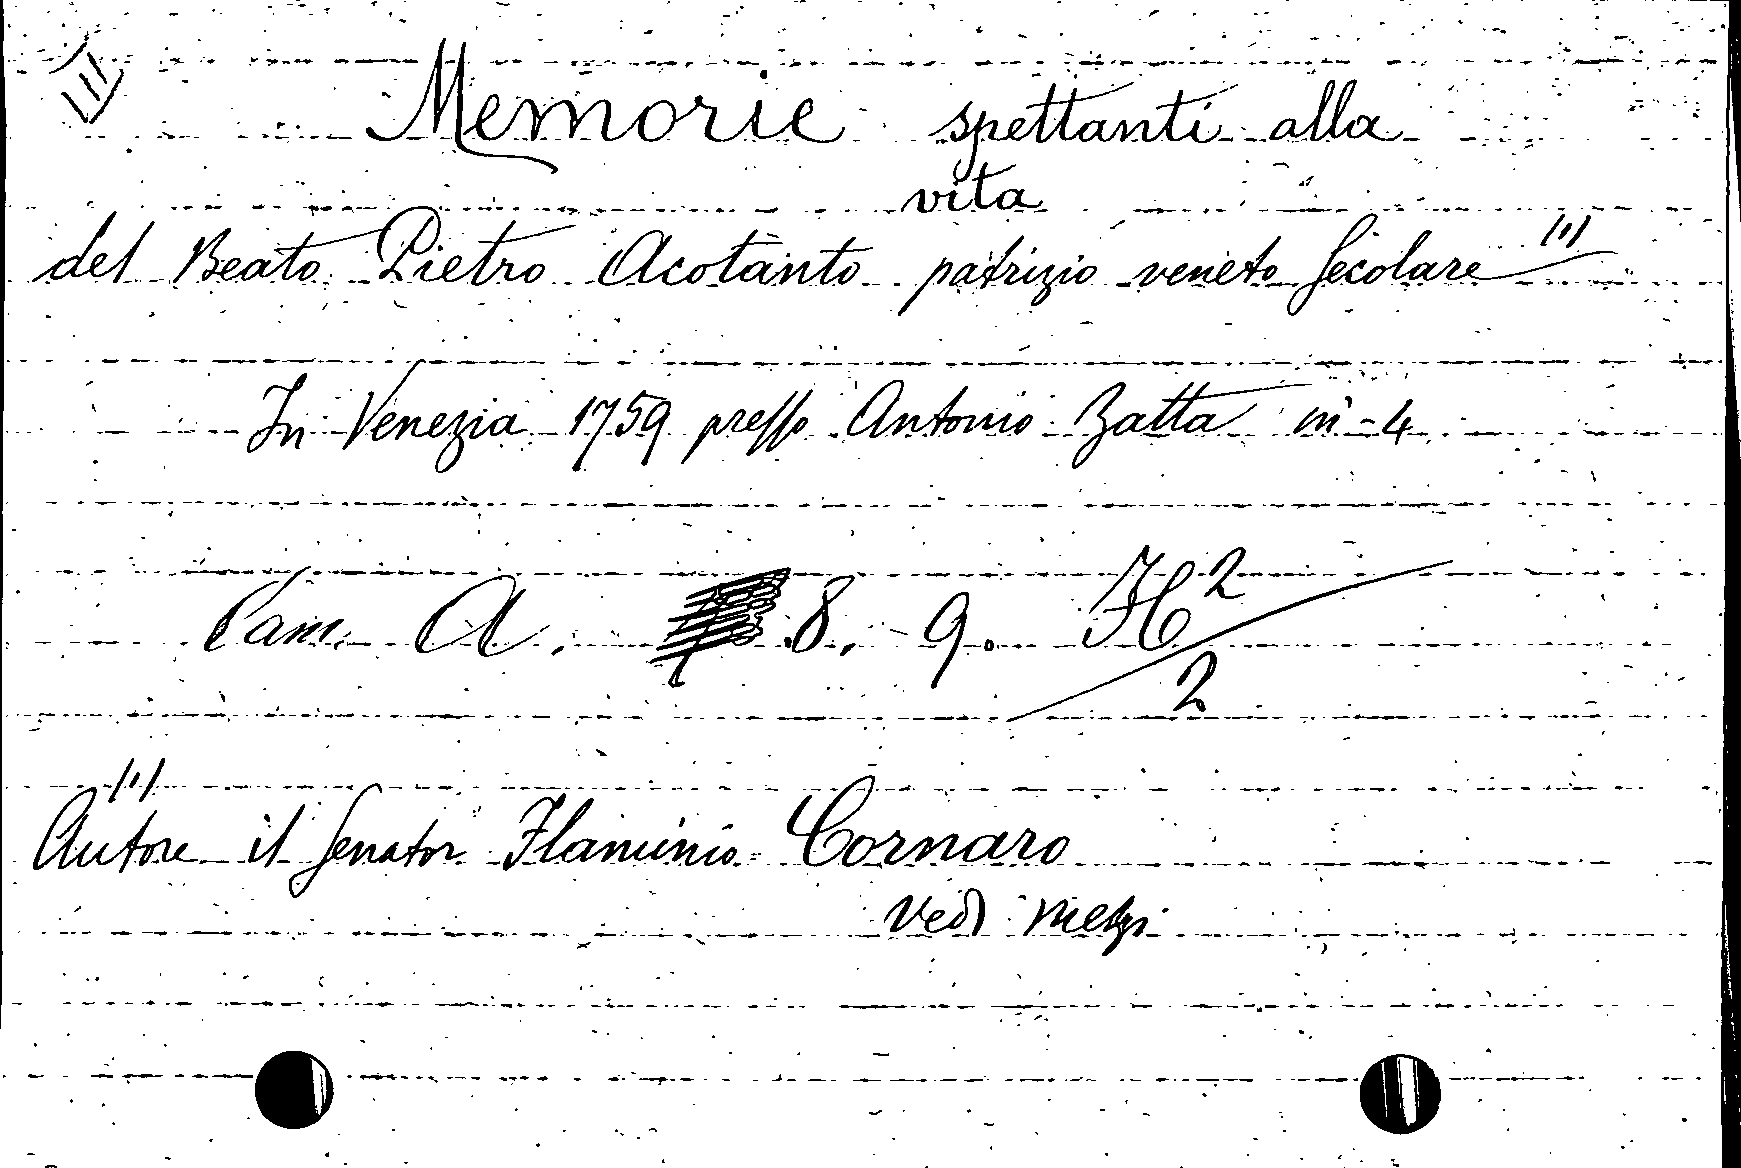 Memorie spettanti alla
vita
del Beato Pietro Acotanto patrizio veneto secolare (1)
In Venezia 1759 presso Antonio Zatta in-4
Cam. A. 8. 9. H2/2
(1)
Autore il Senator Flaminio Cornaro
Vedi Melzi